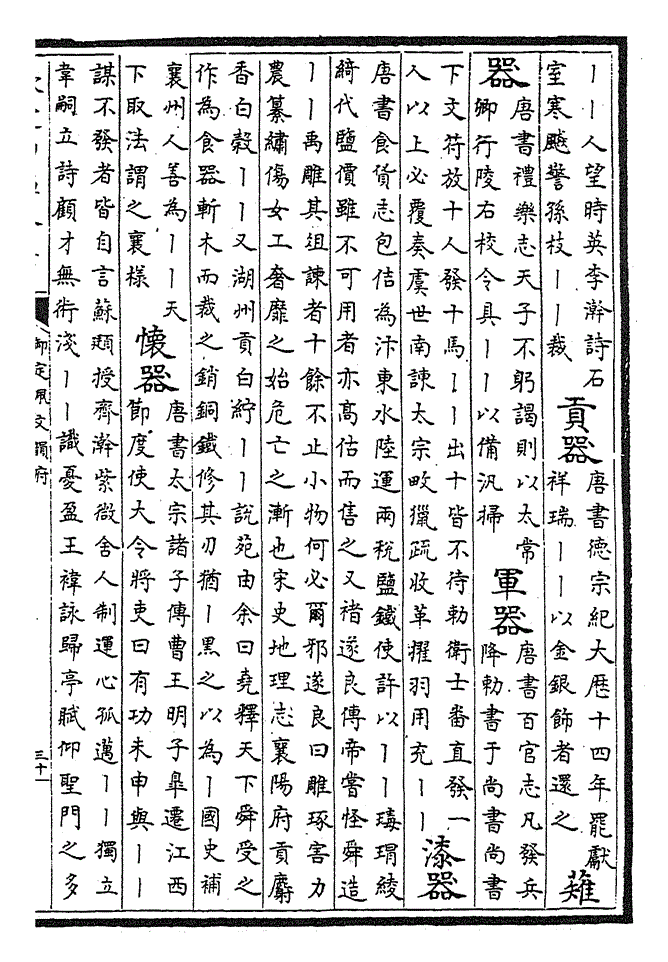 丨丨人望時英李澣詩石
室寒颷警孫枝丨丨裁
貢器
唐書德宗紀大厯十四年罷獻
祥瑞丨丨以金銀飾者還之
薙
器
唐書禮樂志天子不躬謁則以太常
卿行陵右校令具丨丨以備汎掃
軍器
唐書百官志凡發兵
降勅書于尚書尚書
下文符放十人發十馬丨丨出十皆不待勅衛士番直發一
人以上必覆奏虞世南諫太宗畋獵疏收革擢羽用充丨丨
漆器
唐書食貨志包佶為汴東水陸運兩税鹽鐵使許以丨丨瑇瑁綾
綺代鹽價雖不可用者亦高估而售之又禇遂良傳帝嘗怪舜造
丨丨禹雕其俎諫者十餘不止小物何必爾邪遂良曰雕琢害力
農纂繡傷女工奢靡之始危亡之漸也宋史地理志襄陽府貢麝
香白縠丨丨又湖州貢白紵丨丨說苑由余曰堯釋天下舜受之
作為食器斬木而裁之銷銅鐵修其刃猶丨黑之以為丨國史補
襄州人善為丨丨天
下取法謂之襄様
懐器
唐書太宗諸子傳曹王明子臯遷江西
節度使大令將吏曰有功未申與丨丨
謀不發者皆自言蘇頲授齊澣紫微舍人制運心孤邁丨丨獨立
韋嗣立詩顧才無術淺丨丨識憂盈王褘詠歸亭賦仰聖門之多
御定佩文韻府